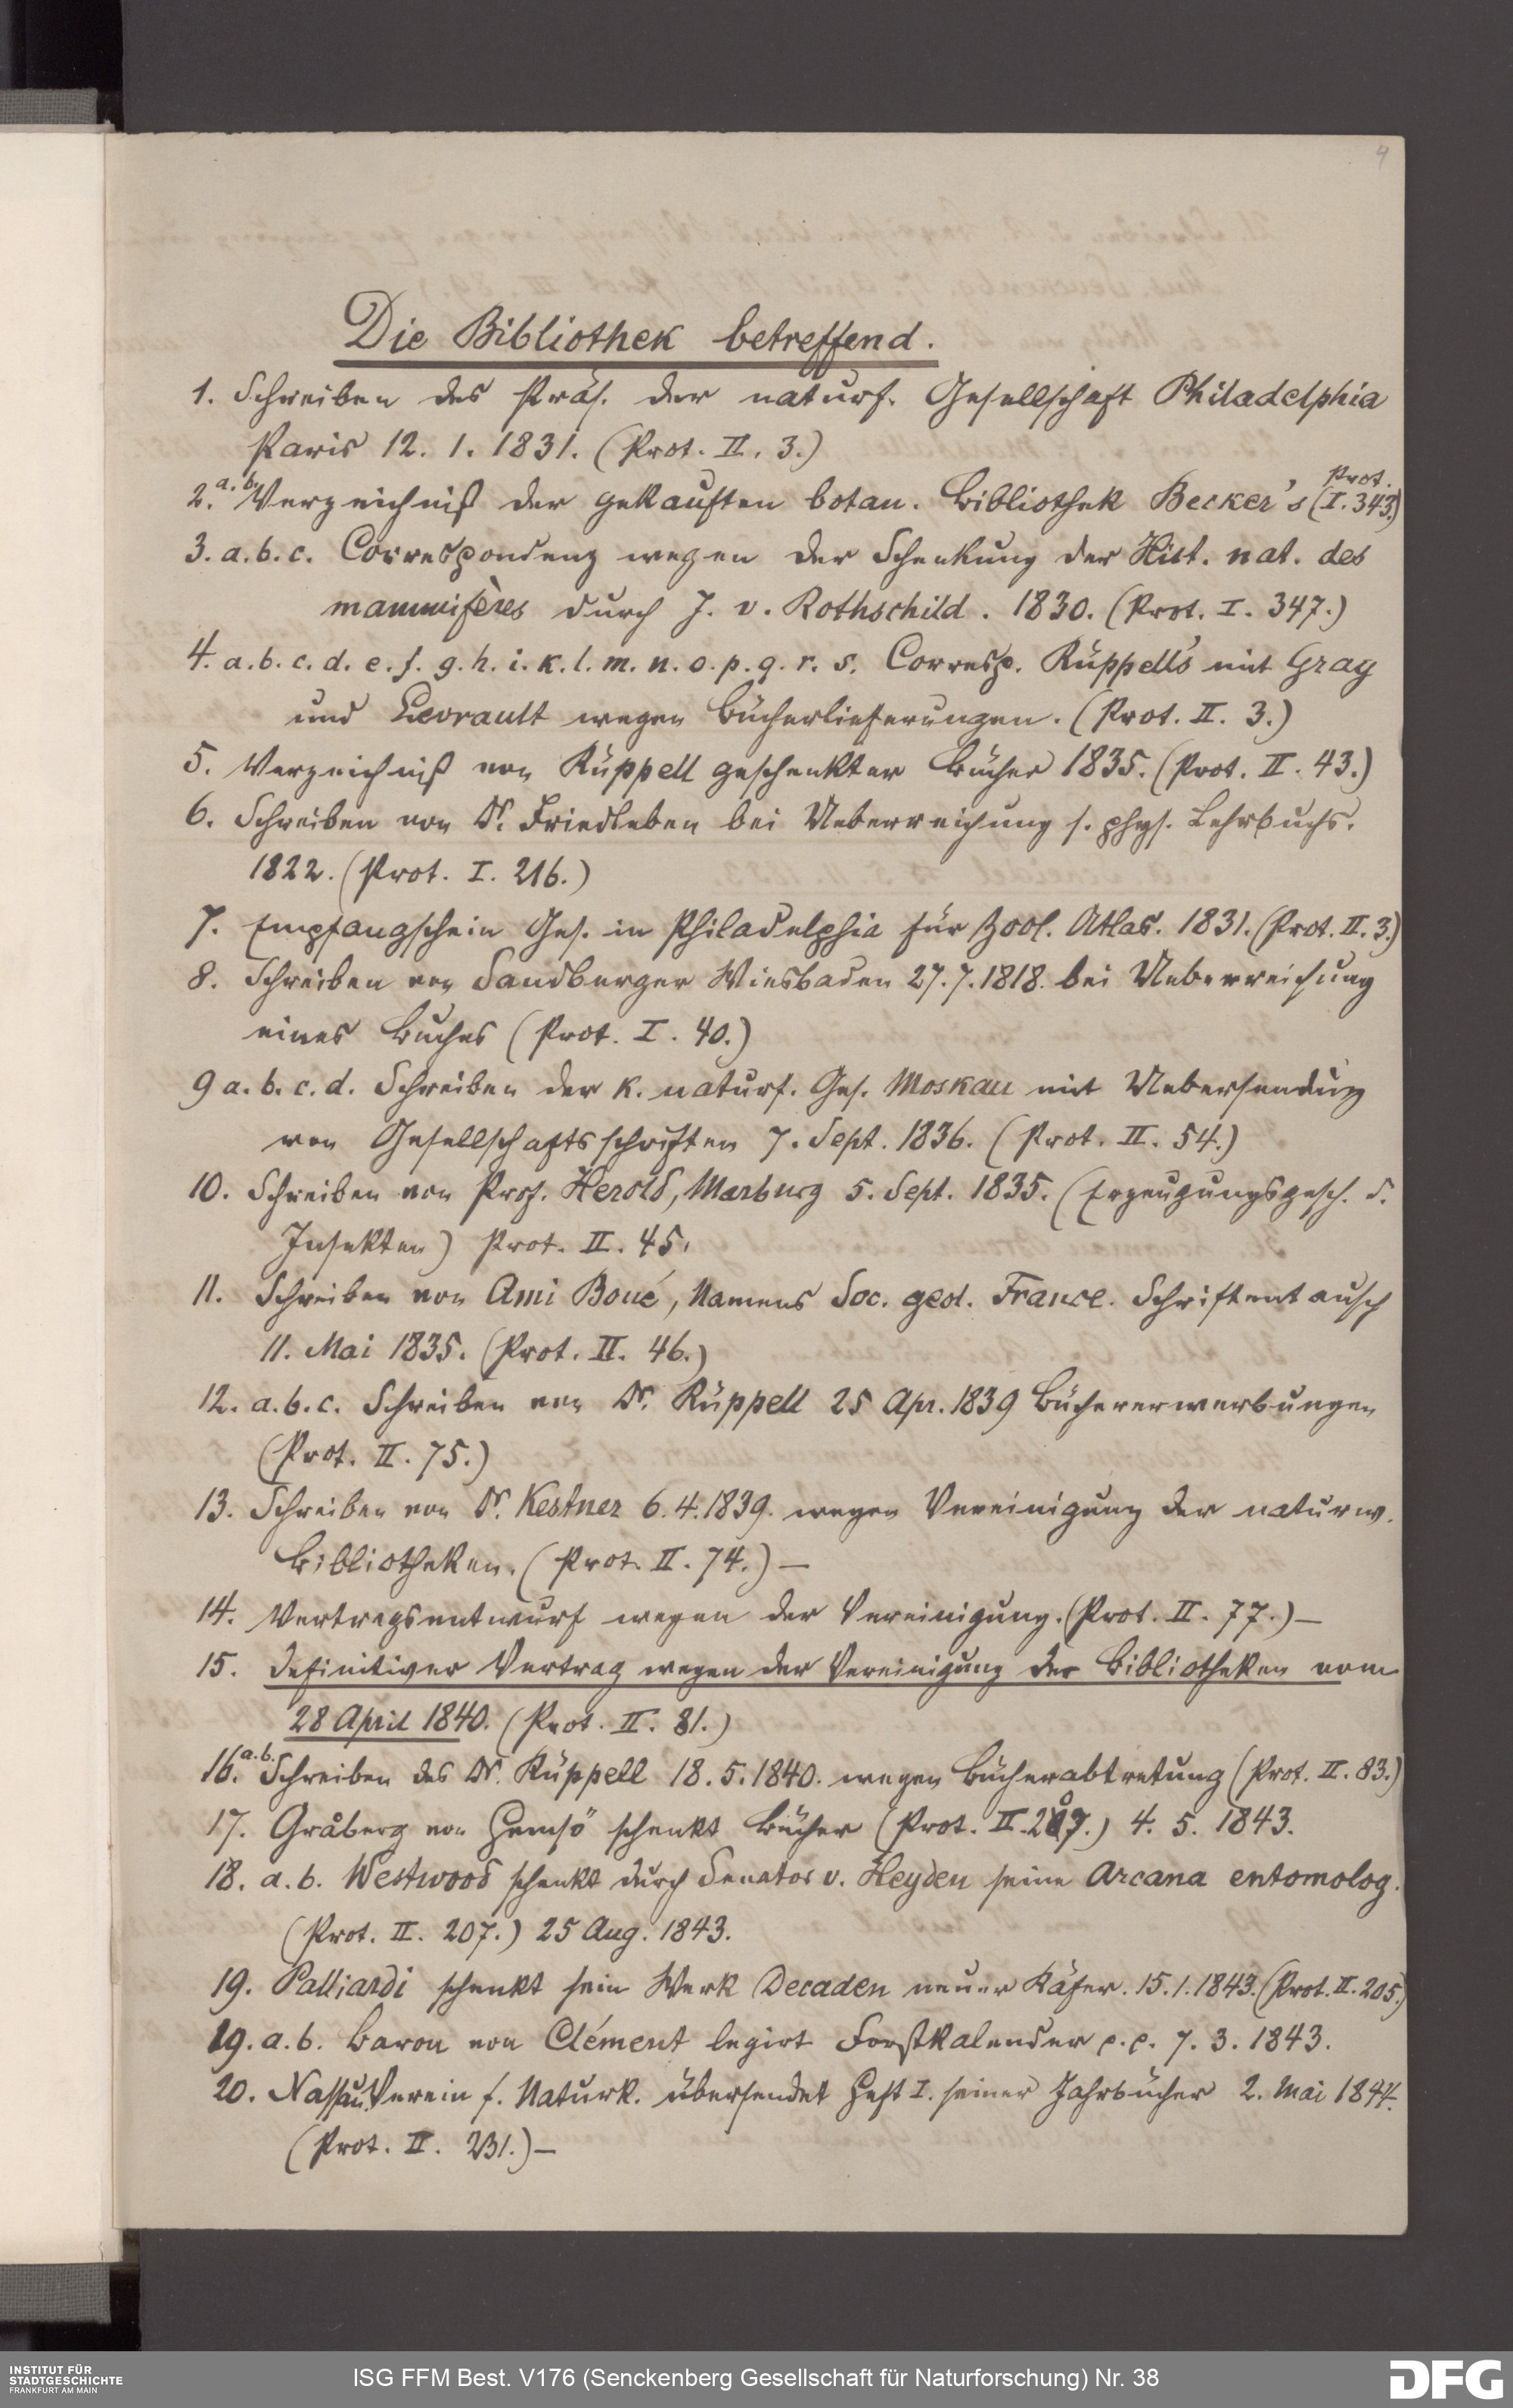 4
Die Bibliothek betreffend.
1. Schreiben des Präs. der naturf. Gesellschaft Philadelphia
Paris 12. 1. 1831. (Prot. II. 3.)
Prot.
2. a. b. Verzeichniß der gekauften botan. Bibliothek Becker's (I. 343.)
3. a. b. c. Correspondenz wegen der Schenkung der Hist. nat. des
mammifères durch J. v. Rothschild. 1830. (Prot. I. 347.)
4. a. b. c. d. e. f. g. h. i. k. l. m. n. o. p. q. r. s. Corresp. Rüppell's mit Gray
und Levrault wegen Bücherlieferungen. (Prot. II. 3.)
5. Verzeichniß von Rüppell geschenkter Bücher 1835. (Prot. II. 43.)
6. Schreiben von Dr. Friedleben bei Ueberreichung s. phys. Lehrbuchs.
1822. (Prot. I. 216.)
7. Empfangschein Ges. in Philadelphia für Zool. Atlas. 1831. (Prot. II. 3.)
8. Schreiben von Sandberger Wiesbaden 27. 7. 1818. bei Ueberreichung
eines Buches (Prot. I. 40.)
9 a. b. c. d. Schreiben der k. naturf. Ges. Moskau mit Uebersendung
von Gesellschaftsschriften 7. Sept. 1836. (Prot. II. 54.)
10. Schreiben von Prof. Herold, Marburg 5. Sept. 1835. (Erzeugungsgesch. d.
Insekten) Prot. II. 45.
11. Schreiben von Ami Boué, Namens Soc. geol. France. Schriftentausch
11. Mai 1835. (Prot. II. 46.)
12. a. b. c. Schreiben von Dr. Rüppell 25 Apr. 1839 Büchererwerbungen
(Prot. II. 75.)
13. Schreiben von Dr. Kestner 6. 4. 1839. wegen Vereinigung der naturw.
Bibliotheken. (Prot. II. 74.) —
14. Vertragsentwurf wegen der Vereinigung. (Prot. II. 77.) —
15. Definitiver Vertrag wegen der Vereinigung der Bibliotheken vom
28 April 1840. (Prot. II. 81.)
16. a. b. Schreiben des Dr. Rüppell 18. 5. 1840. wegen Bücherabtretung (Prot. II. 83.)
17. Gråberg von Hemsö schenkt Bücher (Prot. II. 207.) 4. 5. 1843.
18. a. b. Westwood schenkt durch Senator v. Heyden seine Arcana entomolog.
(Prot. II. 207.) 25 Aug. 1843.
19. Palliardi schenkt sein Werk Decaden neuer Käfer. 15. 1. 1843. (Prot. II. 205.)
19. a. b. Baron von Clément legirt Forstkalender p. p. 7. 3. 1843.
20. Nassau. Verein f. Naturk. übersendet Heft I. seiner Jahrbücher 2. Mai 1844.
(Prot. II. 231.) —
INSTITUT FÜR
STADTGESCHICHTE
FRANKFURT AM MAIN
ISG FFM Best. V176 (Senckenberg Gesellschaft für Naturforschung) Nr. 38
DFG